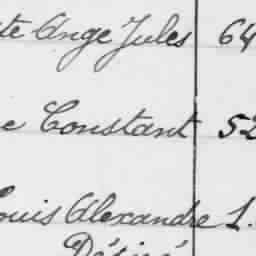 te Ange Jules 64
e Constant 52
Louis Alexandre 1.
Désiré